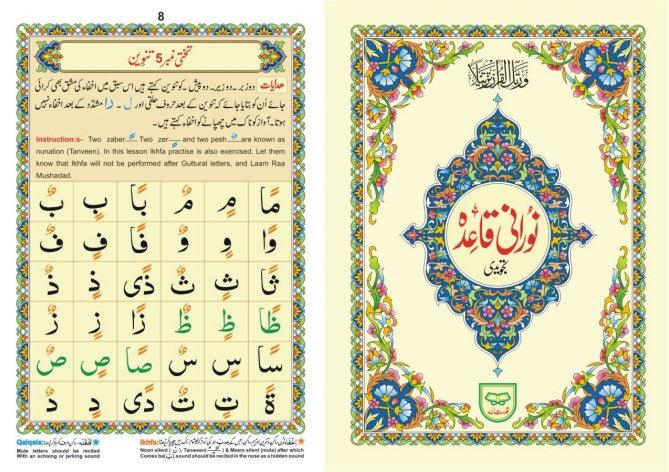 8
تختی نمبر 5 تنوین
ھدایات دو زبر۔ دو زیر۔ دو پیش کو تنوین کہتے ہیں اس سبق میں اخفاء کی مشق بھی کرائی
جائے اُن کو بتایا جائے کہ تنوین کے بعد حروف حلقی اور ل ۔ را مشدّد کے بعد اخفاء نہیں
ہوتا۔ آواز کو ناک میں چھپانے کو اخفاء کہتے ہیں۔
Instruction:s- Two zaber ً Two zer ٍ and two pesh ٌ are known as
nunation (Tanveen). In this lesson Ikhfa practise is also exercised. Let them
know that Ikhfa will not be performed after Guttural letters, and Laam Raa
Mushadad.
مًا مٍ مٌ بًا بٍ بٌ
وًا وٍ وٌ فًا فٍ فٌ
ثًا ثٍ ثٌ ذًی ذٍ ذٌ
ظًا ظٍ ظٌ زًا زٍ زٌ
سًا سٍ سٌ صًا صٍ صٌ
ةً تٍ تٌ دًی دٍ دٌ
Ikhfa:
Noon silent Tanween & Meem silent (mute) after which
Comes ba (ب) sound should be recited in the nose as a hidden sound
Qalqala:
Mute letters should be recited
With an echoing or jerking sound
وَرَتِّلِ الْقُرْاٰنَ تَرْتِیْلًا
نورانی قاعدہ
تجویدی
قدرت اللہ